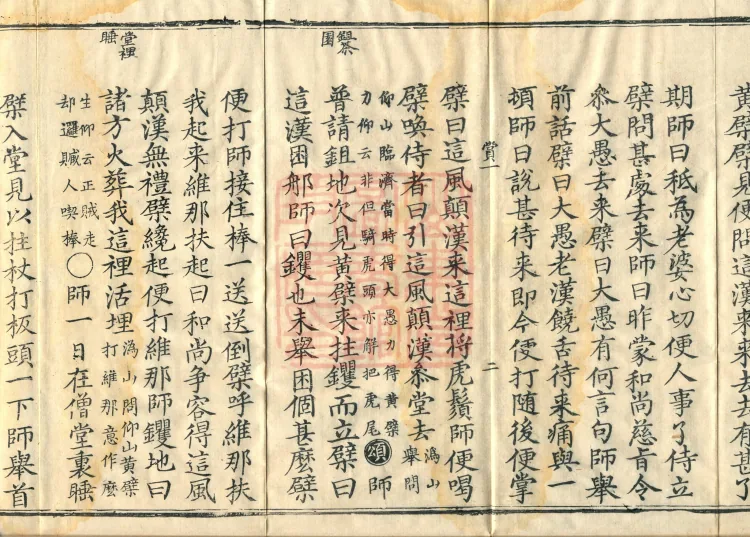 黄檗檗見便問這漢来来去去有甚了
期師曰秪為老婆心切便人事了侍立
檗問甚處去来師曰昨蒙和尚慈旨令
叅大愚去来檗曰大愚有何言句師舉
前話檗曰大愚老漢饒舌待来痛與一
頓師曰說甚待来即今便打随後便掌
賞一
二
檗曰這風顛漢来這裡捋虎鬚師便喝
檗喚侍者曰引這風顛漢叅堂去 溈山舉問
仰山臨濟當時得大愚力得黄檗
力仰云非但騎虎頭亦解把虎尾 頌 師
鋤茶
園
普請鉏地次見黄檗来拄钁而立檗曰
這漢困那師曰钁也未舉困個甚麼檗
便打師接住棒一送送倒檗呼維那扶
我起来維那扶起曰和尚争容得這風
顛漢無禮檗纔起便打維那師钁地曰
堂裡
睡
諸方火葬我這裡活埋 溈山問仰山黄檗打維那意作麽
生仰云正賊走
却邏贓人喫棒 ○ 師一日在僧堂裏睡
檗入堂見以拄杖打板頭一下師舉首